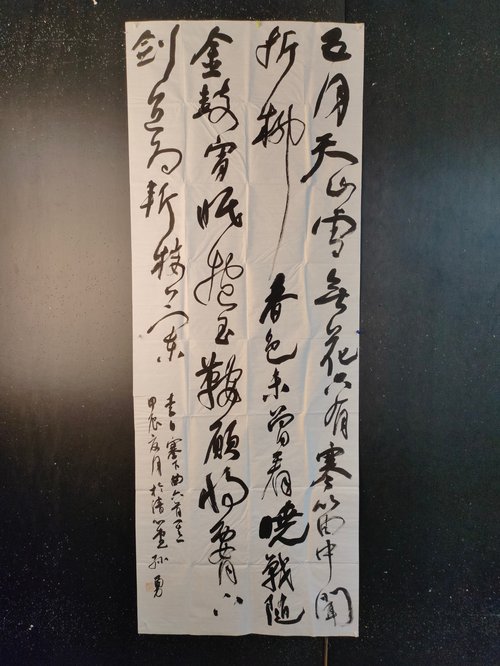 五月天山雪無花只有寒笛中聞
折柳春色未曾看曉戰隨
金鼓宵眠抱玉鞍願將腰下
劍直為斬樓蘭
李白塞下曲六首其一
甲辰夏月於清孫勇